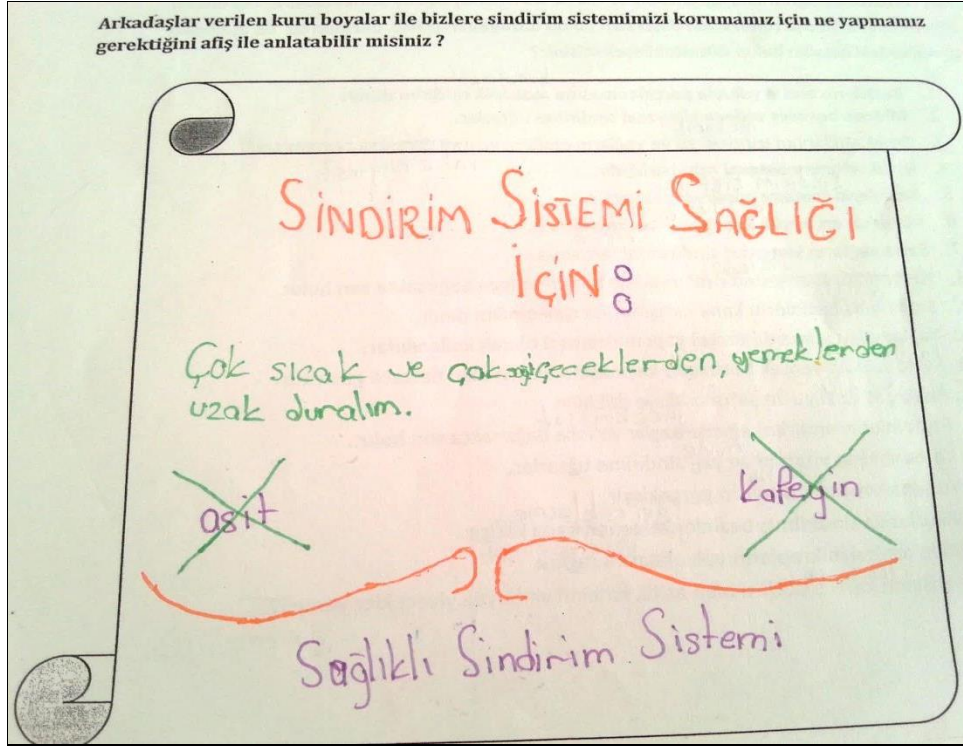 Arkadaşlar verilen kuru boyalar ile bizlere sindirim sistemimizi korumamız için ne yapmamız
gerektiğini afiş ile anlatabilir misiniz ?
SİNDİRİM SİSTEMİ SAĞLIĞI
İÇİN:
Çok sıcak ve çok içeceklerden, yemeklerden
uzak duralım.
asit
Kafeyin
Sağlıklı Sindirim Sistemi